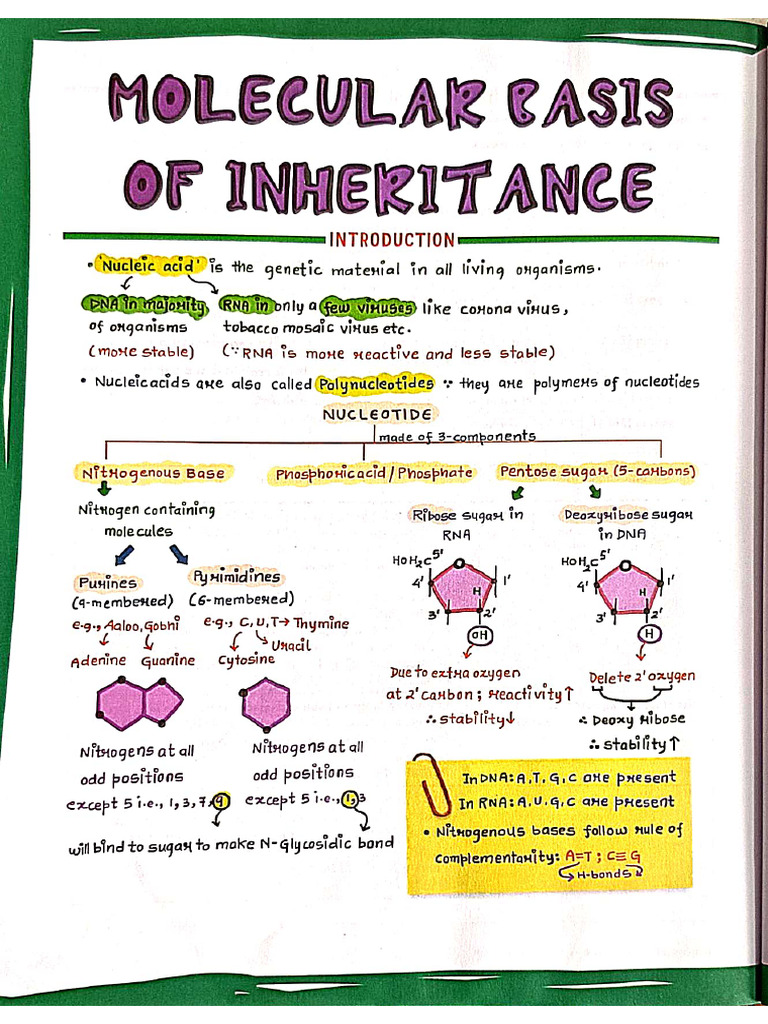 MOLECULAR BASIS
OF INHERITANCE
INTRODUCTION
• 'Nucleic acid' is the genetic material in all living organisms.
DNA in majority RNA in only a few viruses like corona virus,
of organisms tobacco mosaic virus etc.
(more stable) (∵ RNA is more reactive and less stable)
• Nucleicacids are also called Polynucleotides ∵ they are polymers of nucleotides
NUCLEOTIDE
made of 3-components
Nitrogenous Base Phosphoricacid / Phosphate Pentose sugar (5-carbons)
Nitrogen containing
molecules
Ribose sugar in
RNA
Deoxyribose sugar
in DNA
Purines
(9-membered)
e.g., Aaloo, Gobhi
Adenine Guanine
Pyrimidines
(6-membered)
e.g., C, U, T→ Thymine
Uracil
Cytosine
HOH₂C 5'
4' 1'
H
3' 2'
OH
HOH₂C 5'
4' 1'
H
3' 2'
H
Due to extra oxygen
at 2' carbon ; reactivity↑
∴ stability↓
Delete 2' oxygen
∴ Deoxy ribose
∴ stability↑
Nitrogens at all
odd positions
except 5 i.e., 1, 3, 7, 9
Nitrogens at all
odd positions
except 5 i.e., 1, 3
will bind to sugar to make N-Glycosidic bond
In DNA: A, T, G, C are present
In RNA: A, U, G, C are present
• Nitrogenous bases follow rule of
complementarity: A=T ; C≡G
H-bonds